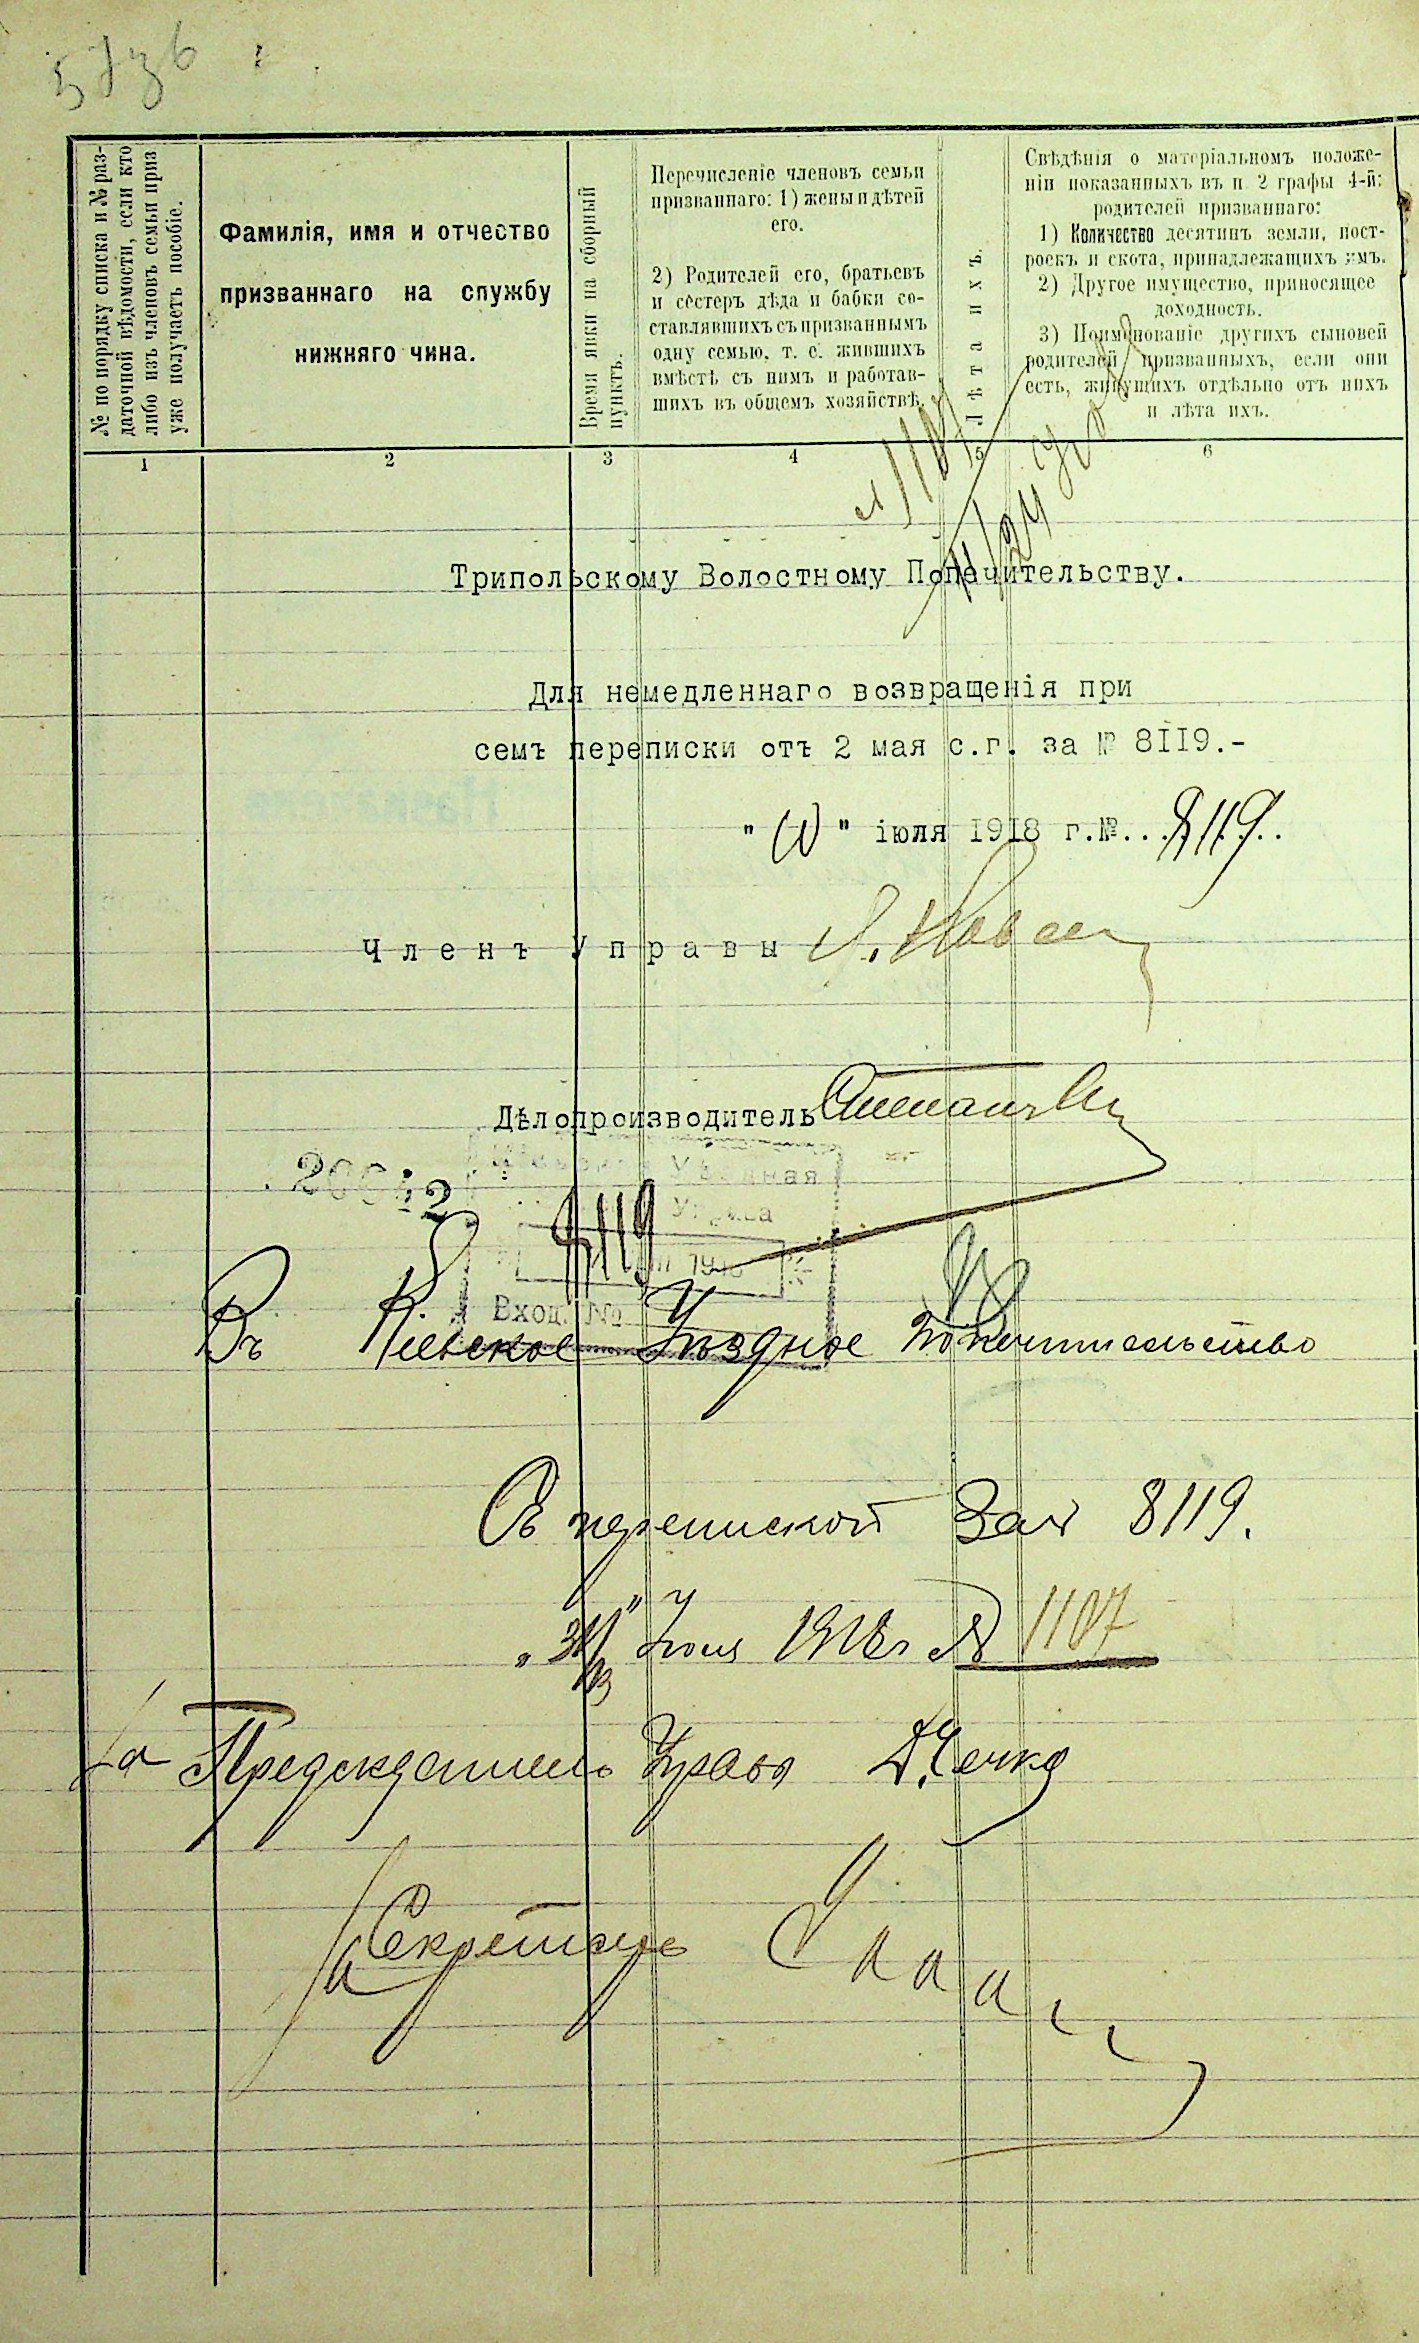 № по порядку списка и № раз-
даточной вѣдомости, если кто
либо изъ членовъ семьи приз
уже получаетъ пособіе.
Фамилія, имя и отчество
призваннаго на службу
нижняго чина.
Время явки на сборный
пунктъ.
Перечисленіе членовъ семьи
призваннаго: 1) жены и дѣтей
его.
2) Родителей его, братьевъ
и сестеръ дѣда и бабки со-
ставлявшихъ съ призваннымъ
одну семью, т. е. жившихъ
вмѣстѣ съ нимъ и работав-
шихъ въ общемъ хозяйствѣ.
Лѣта ихъ.
Свѣдѣнія о матеріальномъ положе-
ніи показанныхъ въ п. 2 графы 4-й:
родителей призваннаго:
1) Количество десятинъ земли, пост-
роекъ и скота, принадлежащихъ имъ.
2) Другое имущество, приносящее
доходность.
3) Поименованіе другихъ сыновей
родителей призванныхъ, если они
есть, живущихъ отдѣльно отъ нихъ
и лѣта ихъ.
1 2 3 4 5 6
Трипольскому Волостному Попечительству.
Для немедленнаго возвращенія при
семъ переписки отъ 2 мая с.г. за № 8II9.-
" " іюля 1918 г.№...8119..
Членъ Управы
Дѣлопроизводитель
Уѣздная
Управа
8119
Вход. №
Въ Кіевское Уѣздное Попечительство
Съ перепиской за № 8119.
Іюля 1918 г № 1107
За Предсѣдатель Управы
За Секретарь